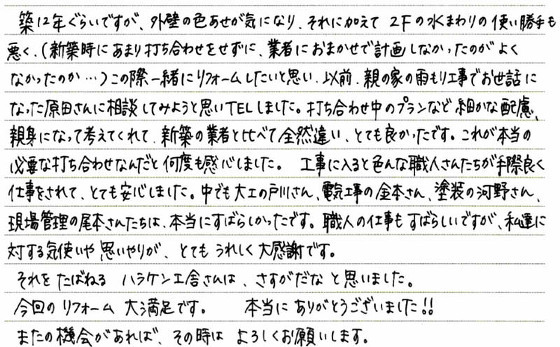 築12年ぐらいですが、外壁の色あせが気になり、それに加えて 2Fの水まわりの使い勝手も
悪く、(新築時にあまり打ち合わせをせずに、業者におまかせで計画しなかったのがよく
なかったのか…)この際一緒にリフォームしたいと思い、以前、親の家の雨もり工事でお世話に
なった原田さんに相談してみようと思いTELしました。打ち合わせ中のプランなど細かな配慮、
親身になって考えてくれて、新築の業者と比べて全然違い、とても良かったです。これが本当の
必要な打ち合わせなんだと何度も感心しました。 工事に入ると色んな職人さんたちが手際良く
仕事をされて、とても安心しました。中でも大工の戸川さん、電気工事の金本さん、塗装の河野さん、
現場管理の尾本さんたちは、本当にすばらしかったです。職人の仕事もすばらしいですが、私達に
対する気使いや思いやりが、とてもうれしく大感謝です。
それをたばねる ハラケン工舎さんは、さすがだなと思いました。
今回のリフォーム 大満足です。 本当にありがとうございました!!
またの機会があれば、その時は よろしくお願いします。